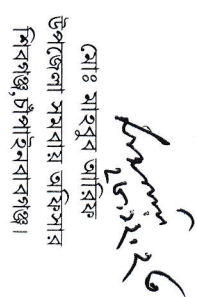 মোঃ মাহবুব আরিফ
উপজেলা সমবায় অফিসার
শিবগঞ্জ, চাঁপাইনবাবগঞ্জ।